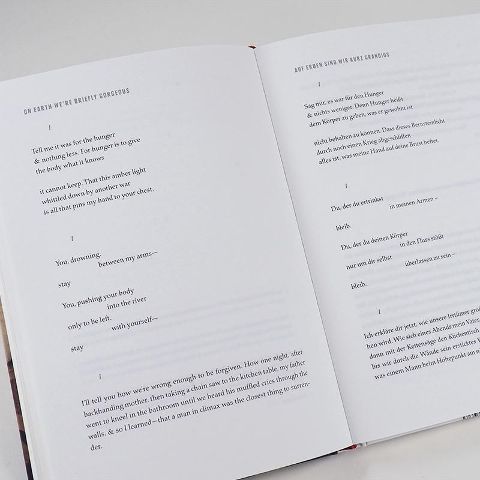 ON EARTH WE'RE BRIEFLY GORGEOUS
i
Tell me it was for the hunger
& nothing less. For hunger is to give
the body what it knows
it cannot keep. That this amber light
whittled down by another war
is all that pins my hand to your chest.
i
You, drowning,
between my arms—
stay
You, pushing your body
into the river
only to be left
with yourself—
stay
i
I'll tell you how we're wrong enough to be forgiven. How one night, after
backhanding mother, then taking a chain saw to the kitchen table, my father
went to kneel in the bathroom until we heard his muffled cries through the
walls. & so I learned—that a man in climax was the closest thing to surren-
der.
AUF ERDEN SIND WIR KURZ GRANDIOS
i
Sag mir, es war für den Hunger
& nichts weniger. Denn Hunger heißt
dem Körper zu geben, was er gewohnt ist
nicht behalten zu können. Dass dieses Bernsteinlicht
durch noch einen Krieg abgeschliffen
alles ist, was meine Hand auf deine Brust heftet.
i
Du, der du ertrinkst
in meinen Armen –
bleib.
Du, der du deinen Körper
in den Fluss stößt
nur um dir selbst
überlassen zu sein –
bleib.
i
Ich erkläre dir jetzt, wie unsere Irrtümer groß
hen wird. Wie sich eines Abends mein Vater,
dann mit der Kettensäge den Küchentisch
bis wir durch die Wände sein ersticktes
was einem Mann beim Höhepunkt am n